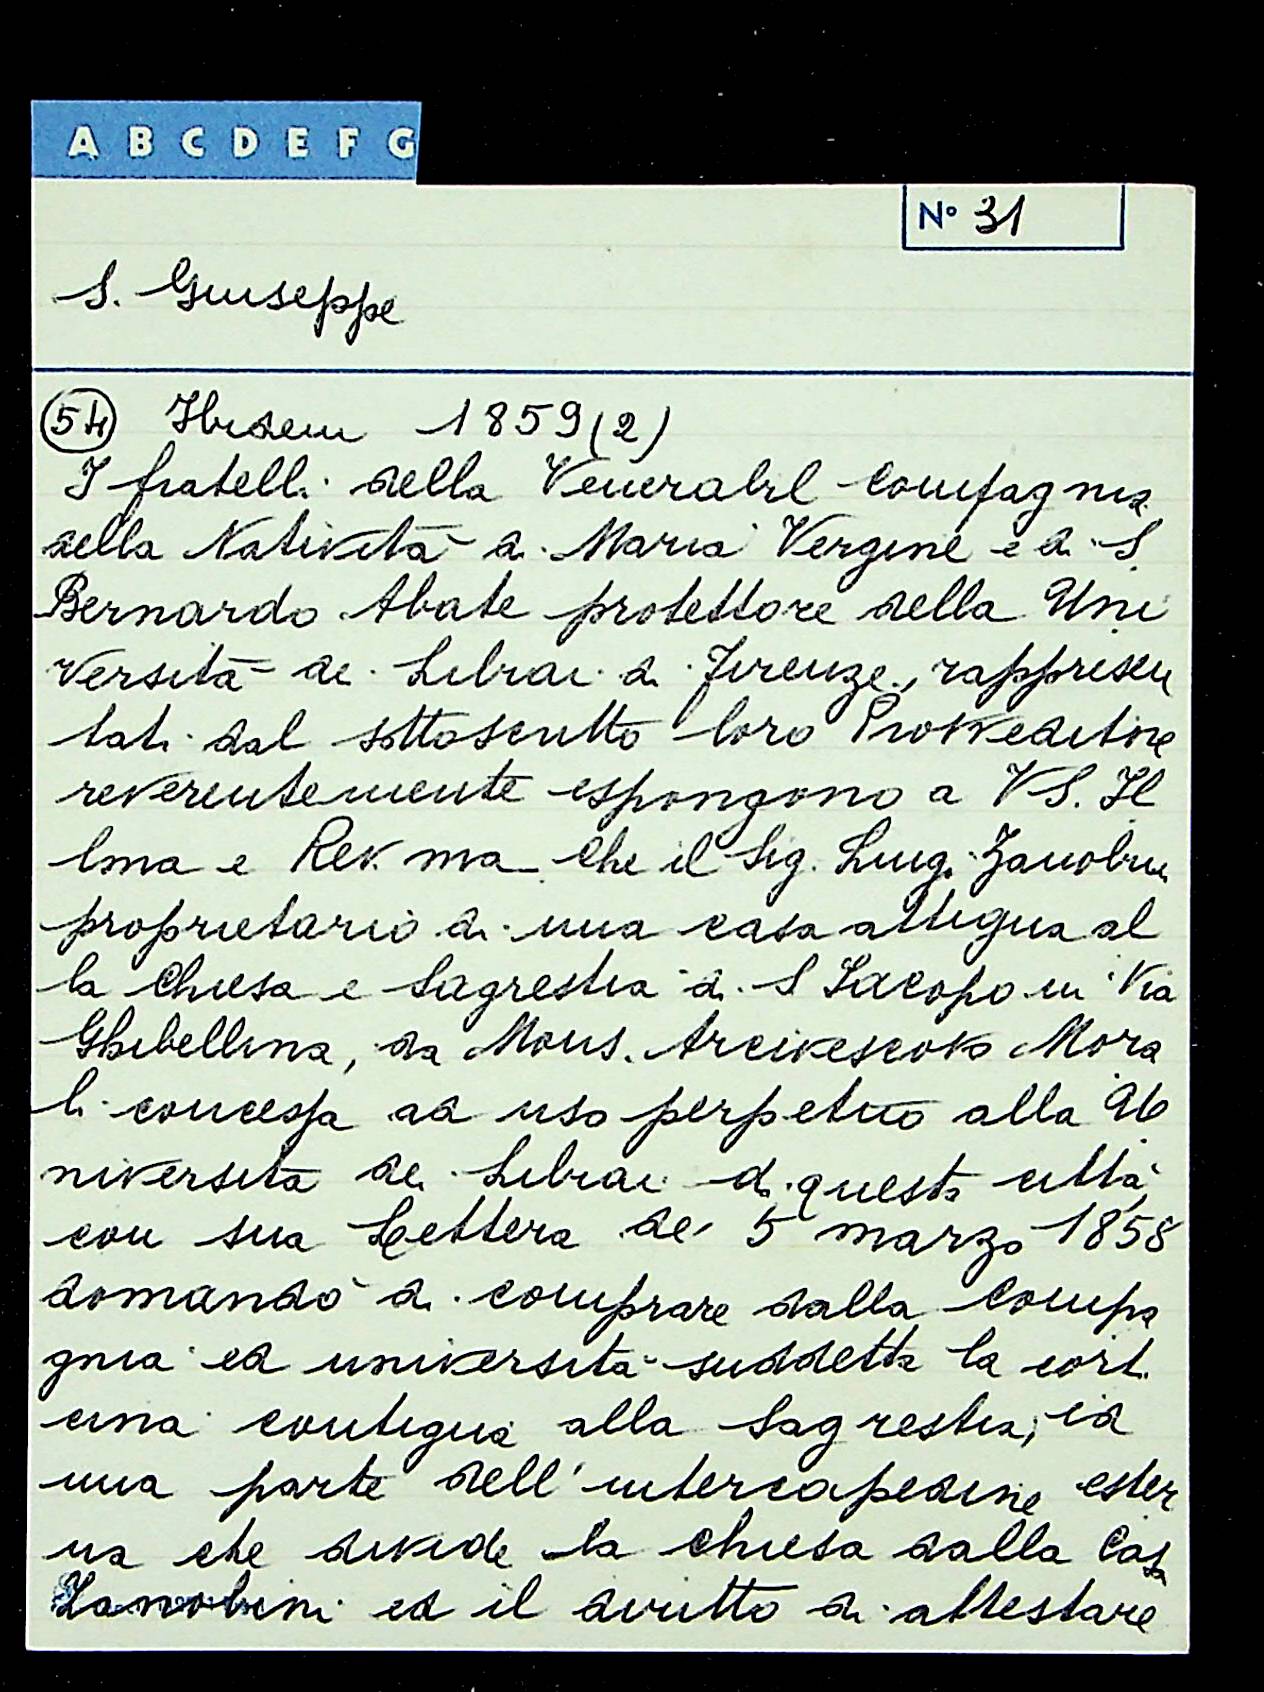 A B C D E F G
Nº 31
S. Giuseppe
54 Ibidem 1859 (2)
I fratelli della Venerabil Compagnia
della Natività di Maria Vergine e di S.
Bernardo Abate protettore della Uni
versità dei Librai di Firenze, rappresen
tati dal sottoscritto loro Provveditore
reverentemente espongono a VS. Il
lma e Rev.ma che il Sig. Luigi Zanobini
proprietario di una casa attigua al
la Chiesa e Sagrestia di S Jacopo in Via
Ghibellina, da Mons. Arcivescovo Mora
li concessa ad uso perpetuo alla U
niversità dei Librai di questa città,
con sua Lettera de' 5 marzo 1858
domandò di comprare dalla Compa
gnia ed università suddetta la corti
cina contigua alla Sagrestia, ed
una parte dell'intercapedine ester
na che divide la chiesa dalla Casa
Zanobini ed il diritto di attestare